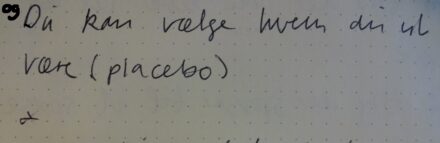 og Du kan vælge hvem du vil
være (placebo)